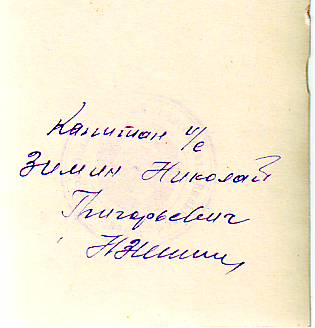 Капитан и/с
Зимин Николай
Григорьевич
НЗимин